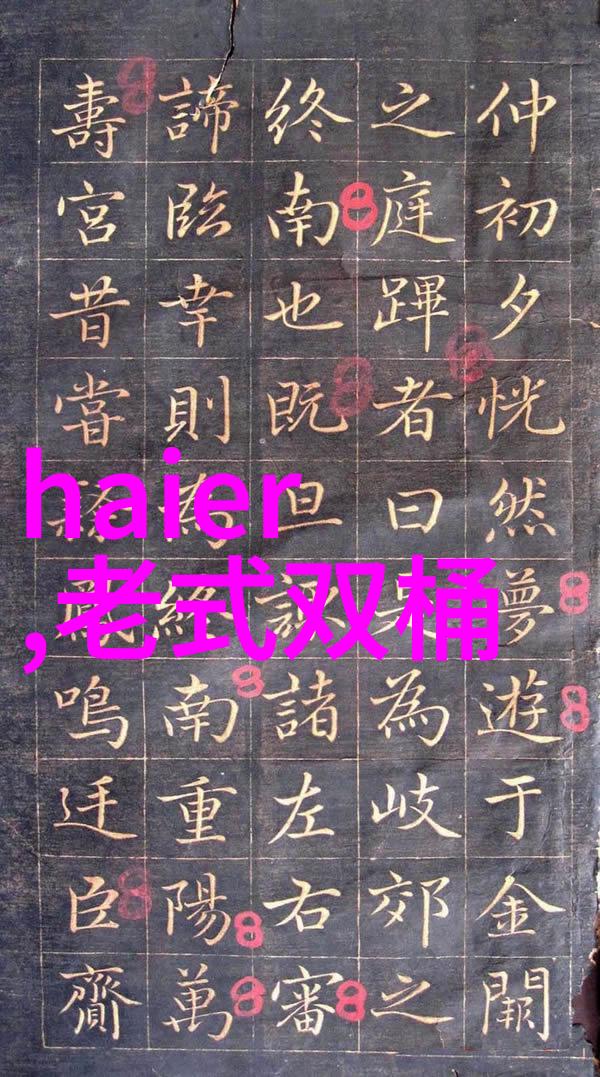 仲初夕恍然夢遊于金闕
之庭蹕者曰為岐郊之
終南也既旦諸左右審
諦臨幸則終南重陽萬
壽宮昔嘗鳴廷臣齎
haier
,老式双桶